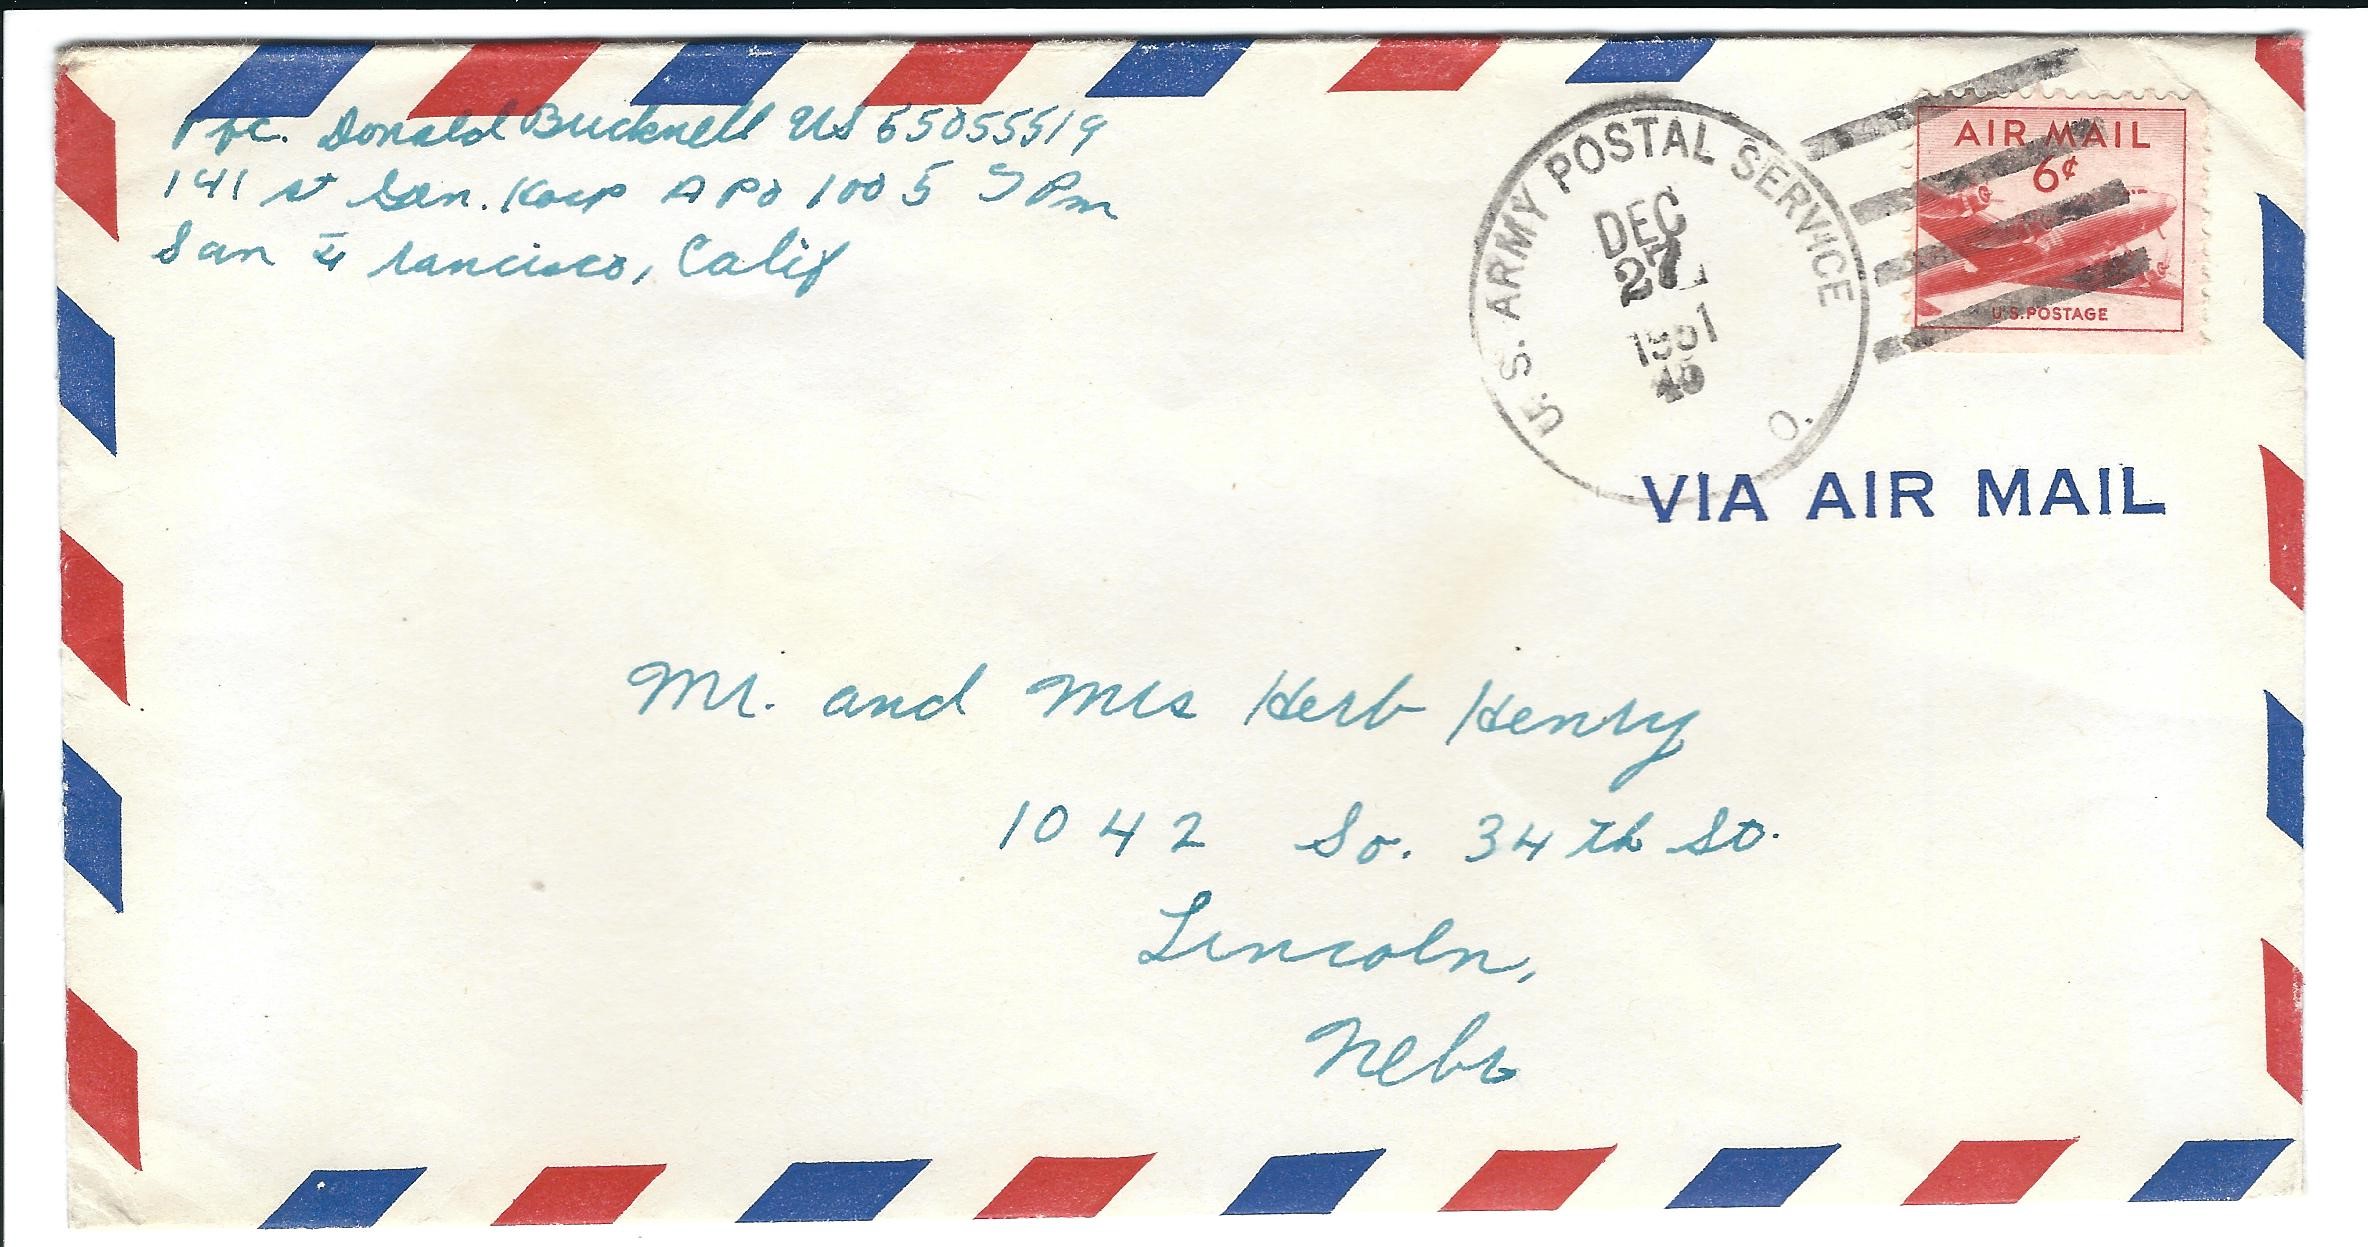 Pfc. Donald Bucknell US 55055519
141 st Gen. Hosp APO 1005 % Pm
San Francisco, Calif
U.S. ARMY POSTAL SERVICE
DEC
27
1951
A.P.O.
AIR MAIL
6¢
U.S. POSTAGE
VIA AIR MAIL
Mr. and Mrs Herb Henry
1042 So. 34th St.
Lincoln,
Nebr